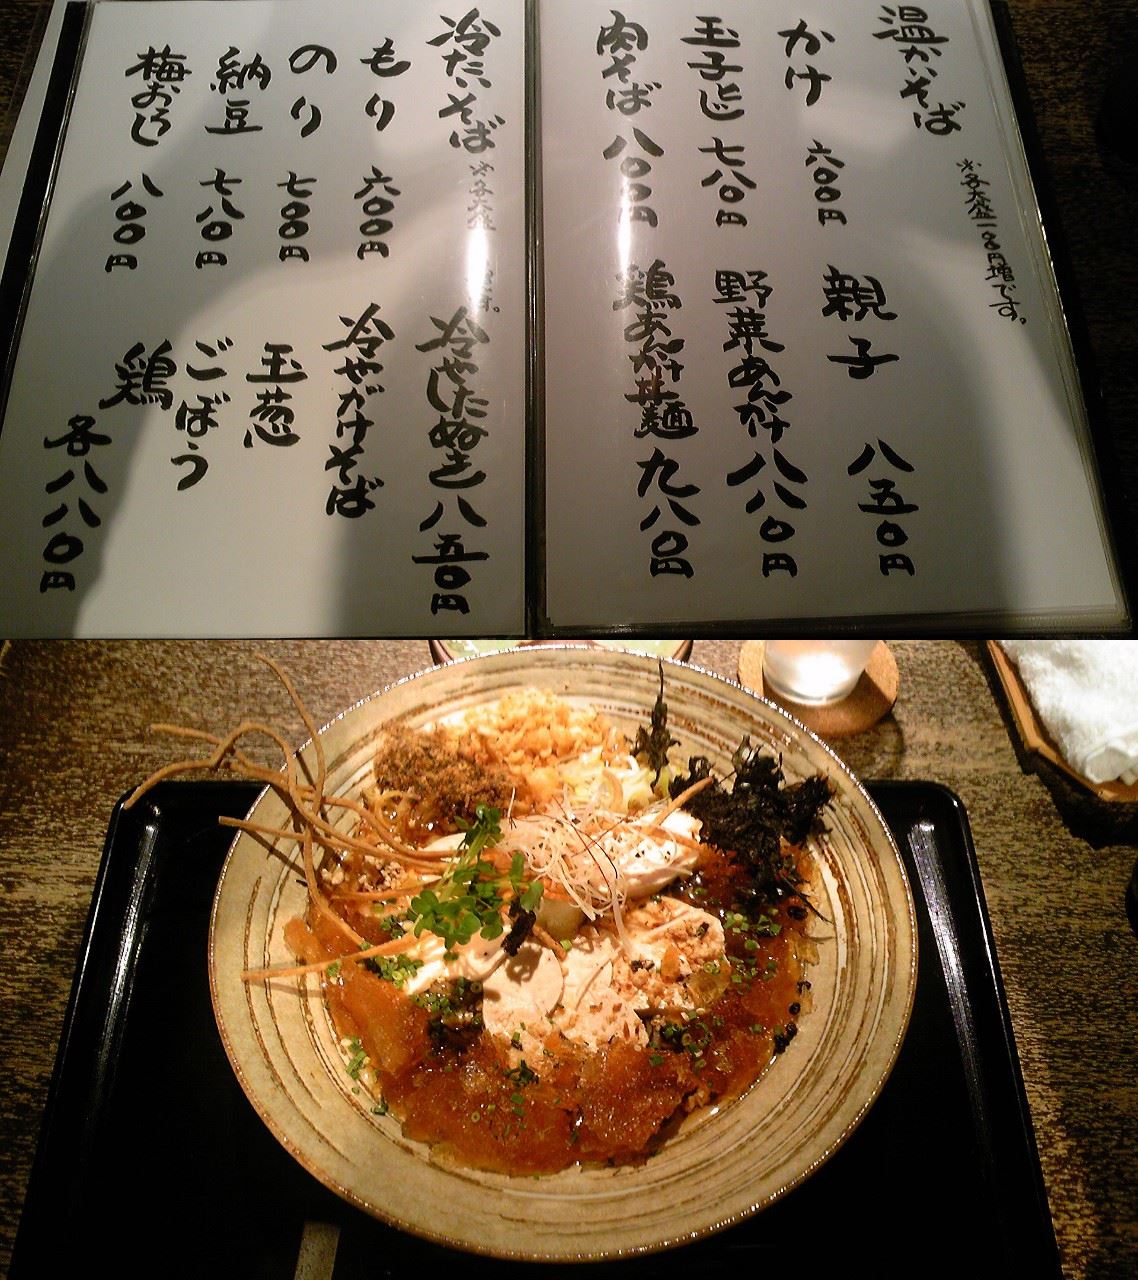 温かいそば
※各大盛一〇〇円増です。
かけ 六〇〇円
親子 八五〇円
玉子とじ 七八〇円
野菜あんかけ 八八〇円
肉そば 八〇〇円
鶏あんかけ丼麺 九八〇円
冷たいそば
※各大盛 です。
もり 六〇〇円
冷やしたぬき 八五〇円
のり 七〇〇円
冷やがけそば
納豆 七八〇円
玉葱
ごぼう
梅おろし 八〇〇円
鶏
各八八〇円